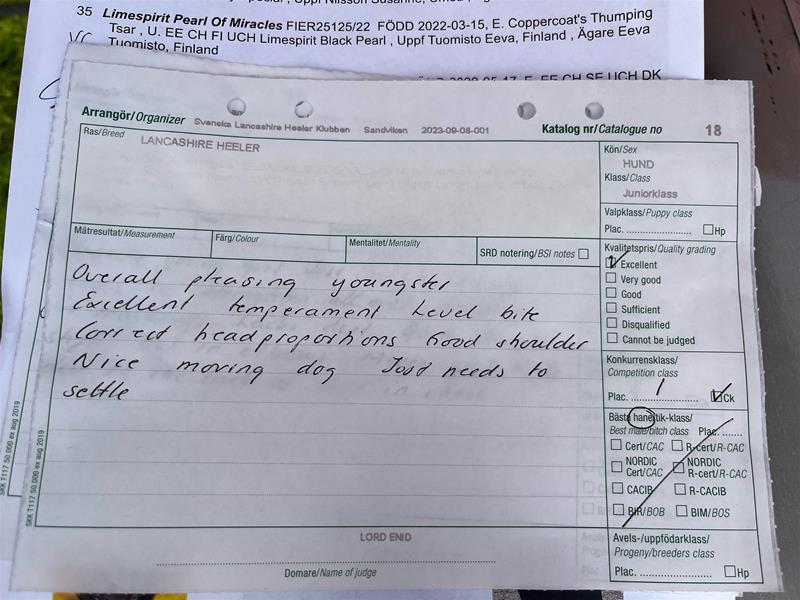 35 Limespirit Pearl Of Miracles FIER25125/22 FÖDD 2022-03-15, E. Coppercoat's Thumping
Tsar , U. EE CH FI UCH Limespirit Black Pearl , Uppf Tuomisto Eeva, Finland , Ägare Eeva
Tuomisto, Finland
Arrangör/Organizer
Svenska Lancashire Heeler Klubben Sandviken 2023-09-08-001
Katalog nr/Catalogue no 18
Ras/Breed
LANCASHIRE HEELER
Kön/Sex
HUND
Klass/Class
Juniorklass
Valpklass/Puppy class
Plac. .......................... Hp
Mätresultat/Measurement
Färg/Colour
Mentalitet/Mentality
SRD notering/BSI notes
Overall pleasing youngster
Excellent temperament Level bite
Correct headproportions Good shoulder
Nice moving dog Just needs to
settle
Kvalitetspris/Quality grading
Excellent
Very good
Good
Sufficient
Disqualified
Cannot be judged
Konkurrensklass/
Competition class
Plac. .......1........... Ck
Bästa hane/tik-klass/
Best male/bitch class Plac. .......
Cert/CAC R-cert/R-CAC
NORDIC Cert/CAC NORDIC R-cert/R-CAC
CACIB R-CACIB
BIR/BOB BIM/BOS
Avels-/uppfödarklass/
Progeny/breeders class
Plac. .......................... Hp
LORD ENID
Domare/Name of judge
SKK T117 50.000 ex aug 2019
SKK T117 50.000 ex aug 2019